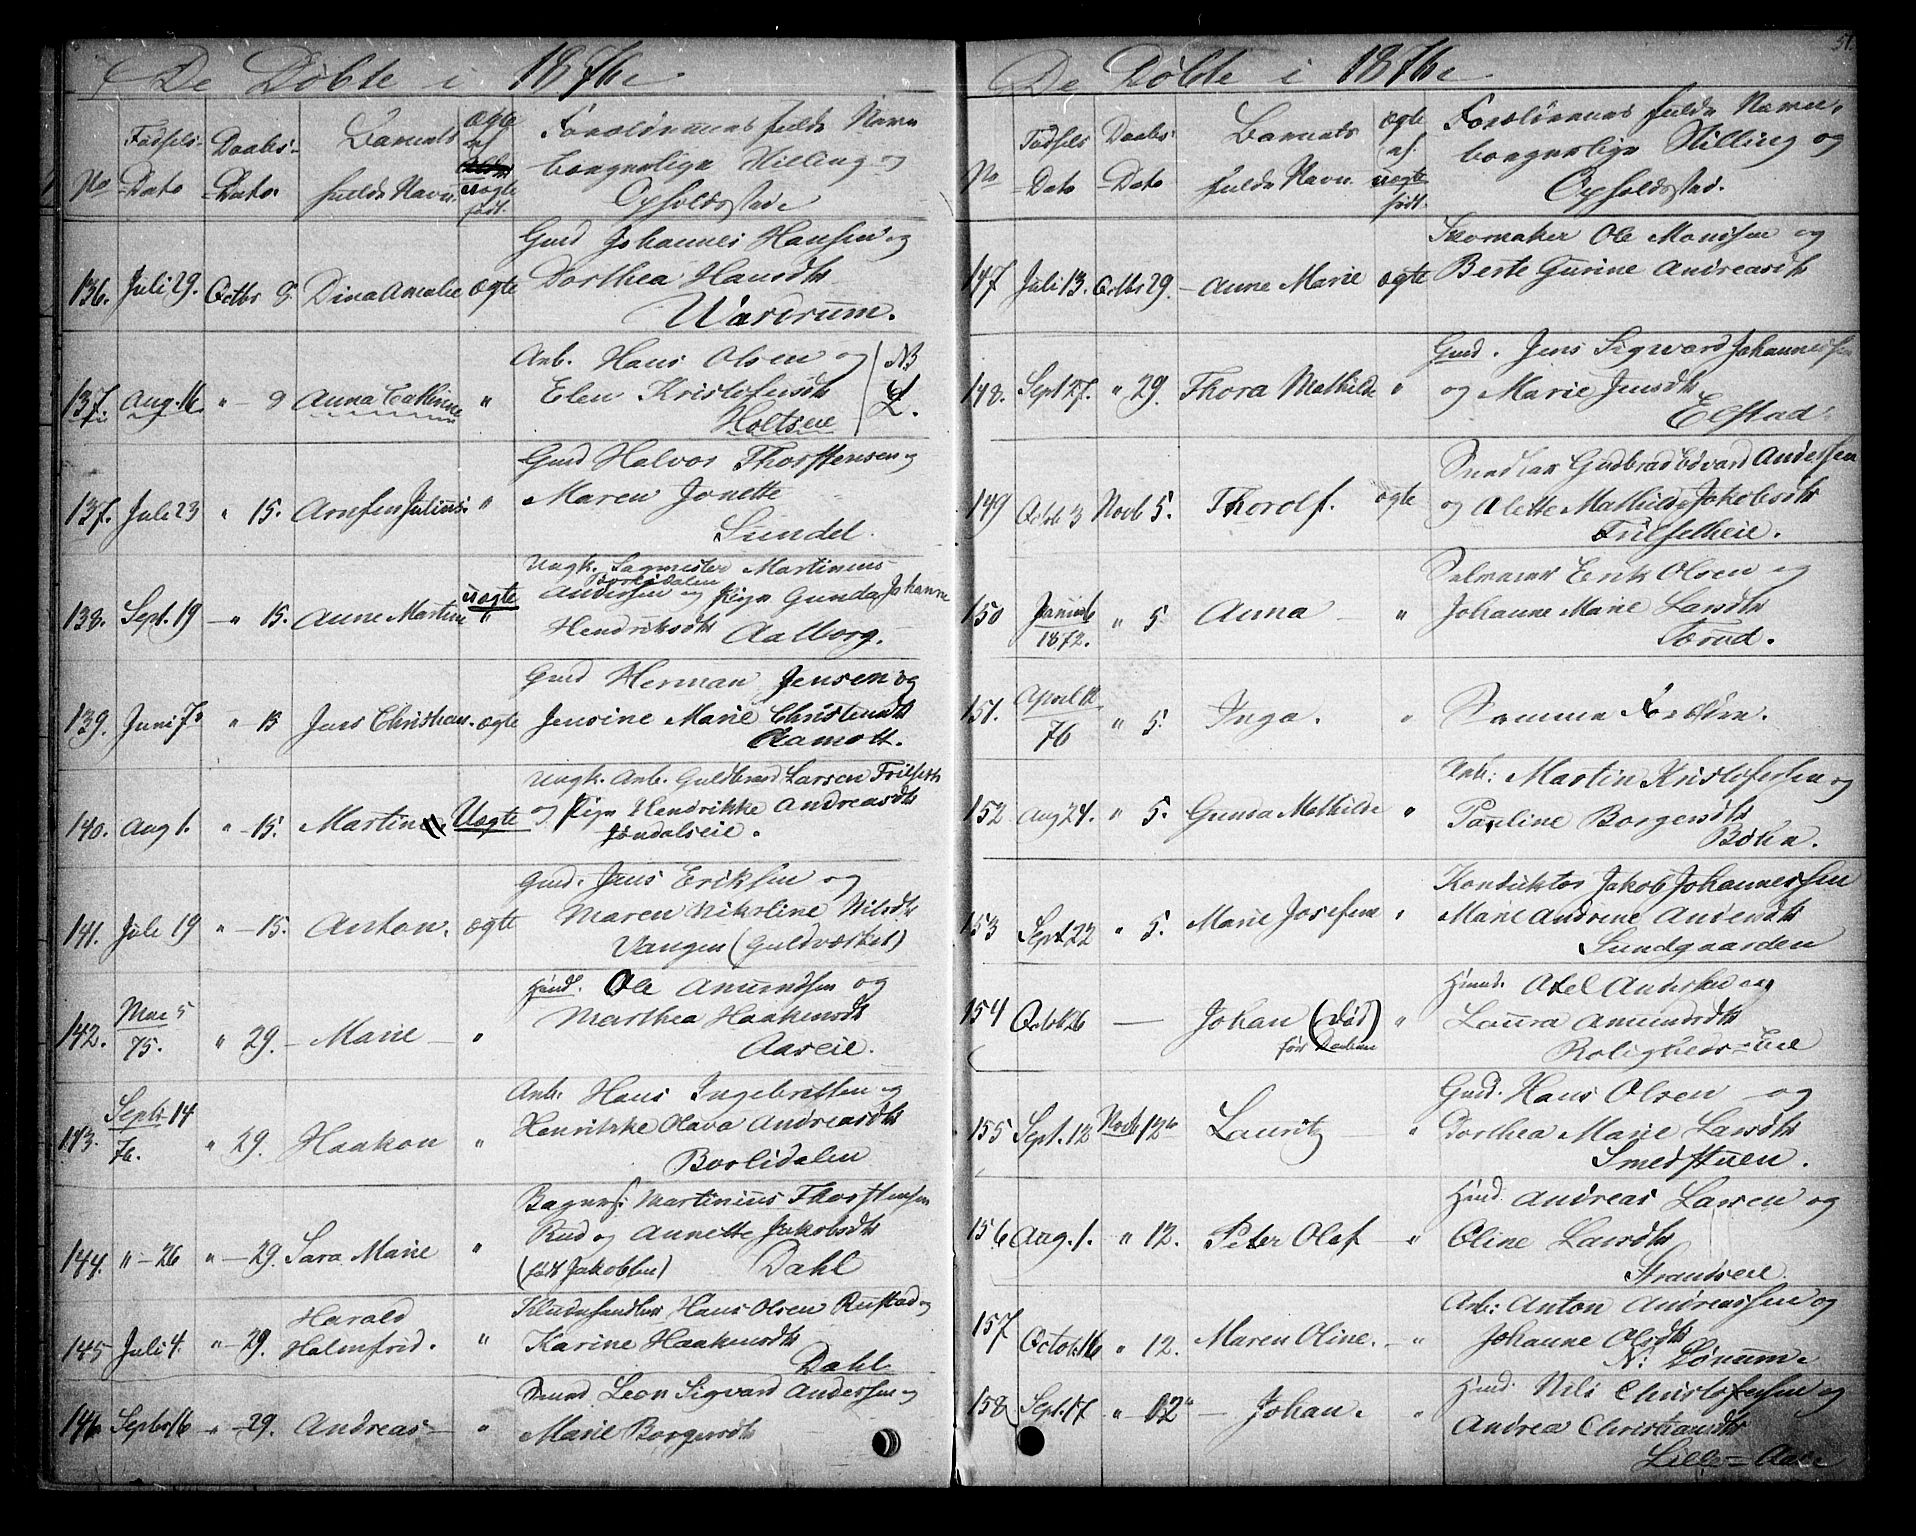 De Döbte i 1876.
Fødsels- Daabs- Barnets ægte Forældrenes fulde Navn
No Dato Dato. fulde Navn. uægte født. borgerlige Stilling og
Opholdssted
Gmd Johannes Hansen og
136. Juli 29. Octbr 8. Dina Amalie ægte Dorthea Hansdtr
Anb. Hans Olsen og NB
137. Aug. 16. " - 8 Anna Cathrine " Elen Kristofersdtr
Holtseie
Gmd Halvor Thorstensen og
137. Juli 23 " 15. Arnfen Julius. " Maren Jonette
Sundet.
Ungk. Sagmester Martinius
Borlidalen
Andersen og Pige Gunda Johanne
138. Sept. 19 - " 15. Anne Martine uægte " Hendriksdtr Aalborg.
Gmd Herman Jensen og
139. Juni 7. " 15 Jens Christian. ægte Jensine Marie Christensdtr
Ramott.
Ungk. Anb. Guldbrand Larsen
140. Aug 1. " - 15. Martine. Uægte og Pige Hendrikke Andreasdtr
Jøndalseie.
Gmd. Jens Eriksen og
141. Juli 19 " - 15. Anton. ægte Maren Nikoline Nilsdtr
Vangen (Guldværket)
Husd. Ole Amundsen og
142. Mai 5 75. " 29. - Marie - " Marthea Haakensdtr
Aaseie.
Anb. Hans Ingebritsen og
143. Septb. 14 76. " 29. Haakon " Henrikke Olava Andreasdtr
Borlidalen
Bagersv. Martinius Thorstensen
Rud og Annette Jakobsdtr
144. " - 26 " - 29. Sara Marie " (født Jakobsen) Dahl
Kludehandler Hans Olsen Rustad og
145 Juli 4. " - 29. Harald Halmfrid. " Karine Haakensdtr
Dahl
Smed Leon Sigvard Andersen og
146 Septbr 16 " - 29. Andreas - " Marie Borgersdtr
51.
De Döbte i 1876.
Fødsels Daabs- Barnets ægte Forældrenes fulde Navn.
No Dato Dato fulde Navn. uægte født. borgerlige Stilling og
Opholdssted.
Skomaker Ole Monssen og
147 Juli 13. Octbr 29. - Anne Marie ægte Berte Gurine Andreasdtr
Gmd. Jens Sigvard Johannessen
148. Sept 27. " 29. Thora Mathilde " og Marie Jensdtr
Elstad.
Snedker Gudbrand Edvard Andersen
149 Octob 3 Novb 5. Thorolf. ægte og Alette Mathilde Jakobsdtr
Erik Olsen og
150 1872. " 5. Anna - " Johanne Marie Larsdtr
151. April 76 " 5. Inga. " Samme Forældre.
Anb: Martin Kristofersen og
152 Aug 24. " 5. Gunda Mathilde " Pauline Borgersdtr
Böhn.
Konduktør Jakob Johannessen
153 Sept 22 " 5. Marie Josefine " Marie Andrine Andersdtr
Sundgaarden
Husmd. Axel Andersen og
154 Octob. 26 - Johan (død) " Laura Amundsdtr
før Daaben Roligheds-Eie
Gmd. Hans Olsen - og
155 Sept. 12 Novb 12 Lauritz - " Dorthea Marie Larsdtr
Smedstuen.
Husd. Andreas Larsen og
156 Aug. 1. " 12. Peter Olaf - " Oline Larsdtr
Strandseie
Arb: Anton Andreassen og
157 Octob. 16 " 12. Maren Oline. - " Johanne Olsdtr
N: Lønum.
Husd. Nils Christofersen og
158 Sept. 17 " - 12 - Johan. " Andrea Christiansdtr
Lille-Aase